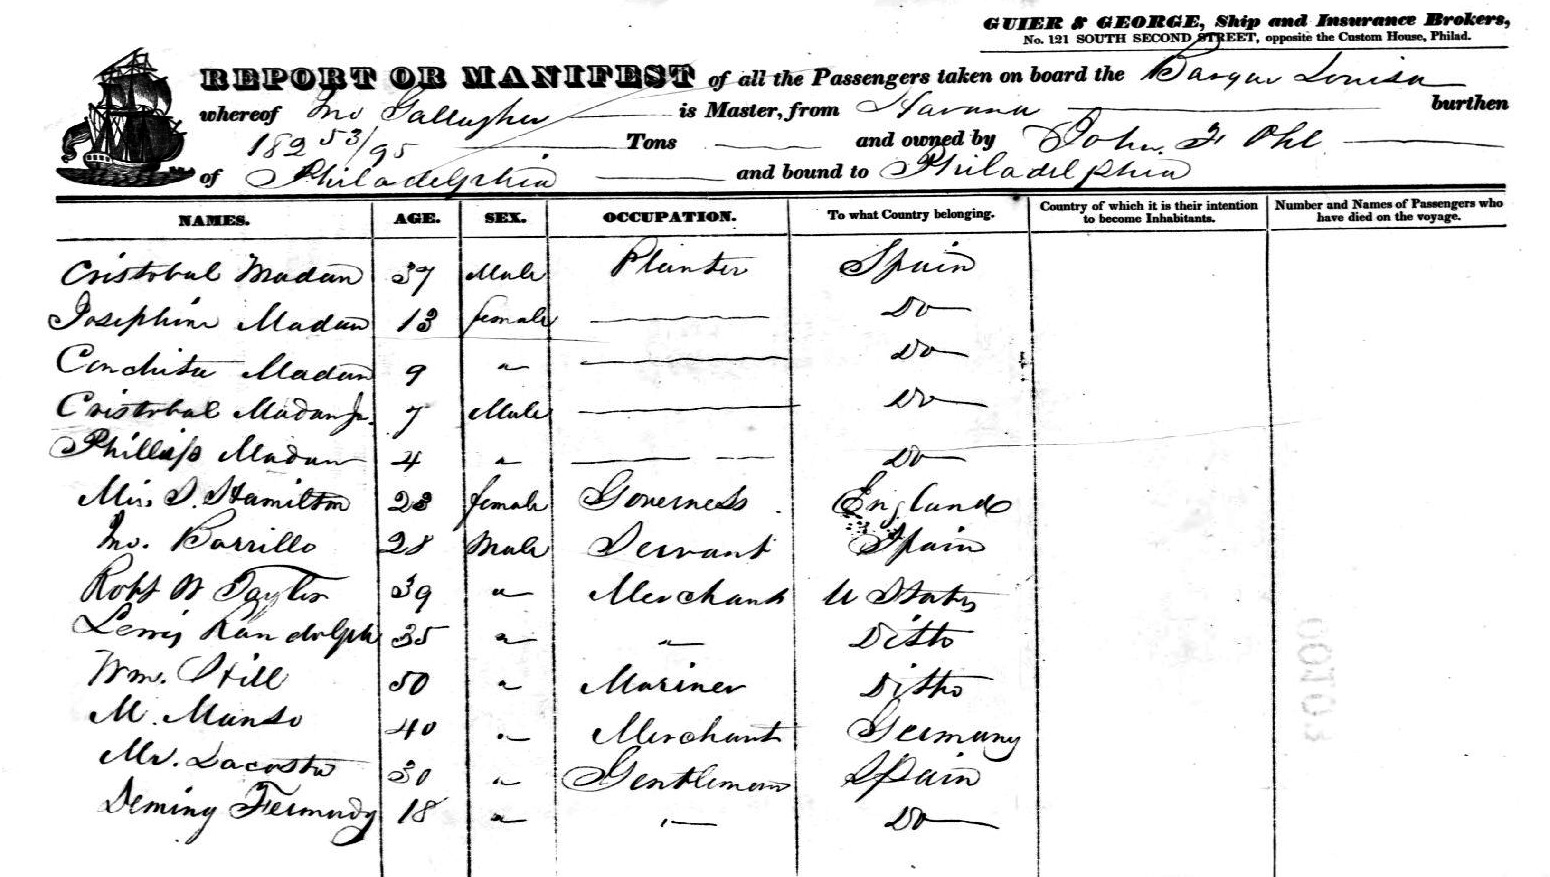 GUIER & GEORGE, Ship and Insurance Brokers,
No. 121 SOUTH SECOND STREET, opposite the Custom House, Philad.
REPORT OR MANIFEST of all the Passengers taken on board the Barque Louisa
whereof Jno Gallagher is Master, from Havana burthen
182 53/95 Tons and owned by John F Ohl
of Philadelphia and bound to Philadelphia
NAMES. AGE. SEX. OCCUPATION. To what Country belonging. Country of which it is their intention to become Inhabitants. Number and Names of Passengers who have died on the voyage.
Cristobal Madan 37 Male Planter Spain
Josephine Madan 13 female Do
Conchita Madan 9 " Do
Cristobal Madan Jr. 7 Male Do
Phillip Madan 4 " Do
Miss S. Hamilton 23 female Governess England
Jno. Barrillo 28 Male Servant Spain
Robt W Taylor 39 " Merchant U States
Lewis Randolph 35 " " Ditto
Wm. Hill 50 " Mariner Ditto
M. Manso 40 " Merchant Germany
Mr. Lacosta 30 " Gentleman Spain
Deming 18 " " Do